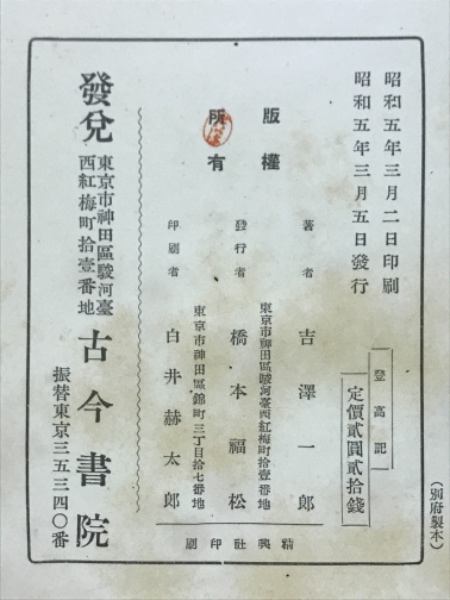 昭和五年三月二日印刷
昭和五年三月五日發行
登高記
定價貳圓貳拾錢
版權
所有
著者 吉澤一郎
東京市神田區駿河臺西紅梅町拾壹番地
發行者 橋本福松
東京市神田區錦町三丁目拾七番地
印刷者 白井赫太郎
精興社印刷
發兌
東京市神田區駿河臺
西紅梅町拾壹番地
古今書院
振替東京三五三四〇番
(別府製本)